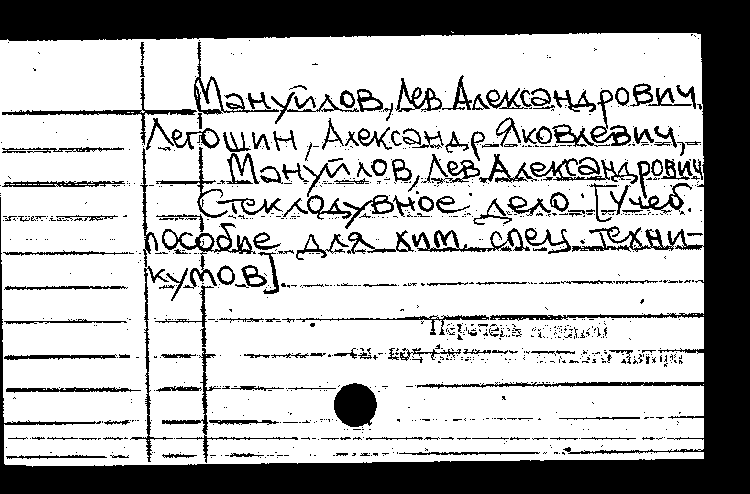 Мануйлов, Лев Александрович.
Легошин, Александр Яковлевич,
Мануйлов, Лев Александрович
Стеклодувное дело. [Учеб.
пособие для хим. спец. техни-
кумов].
Перечень
см. под автора